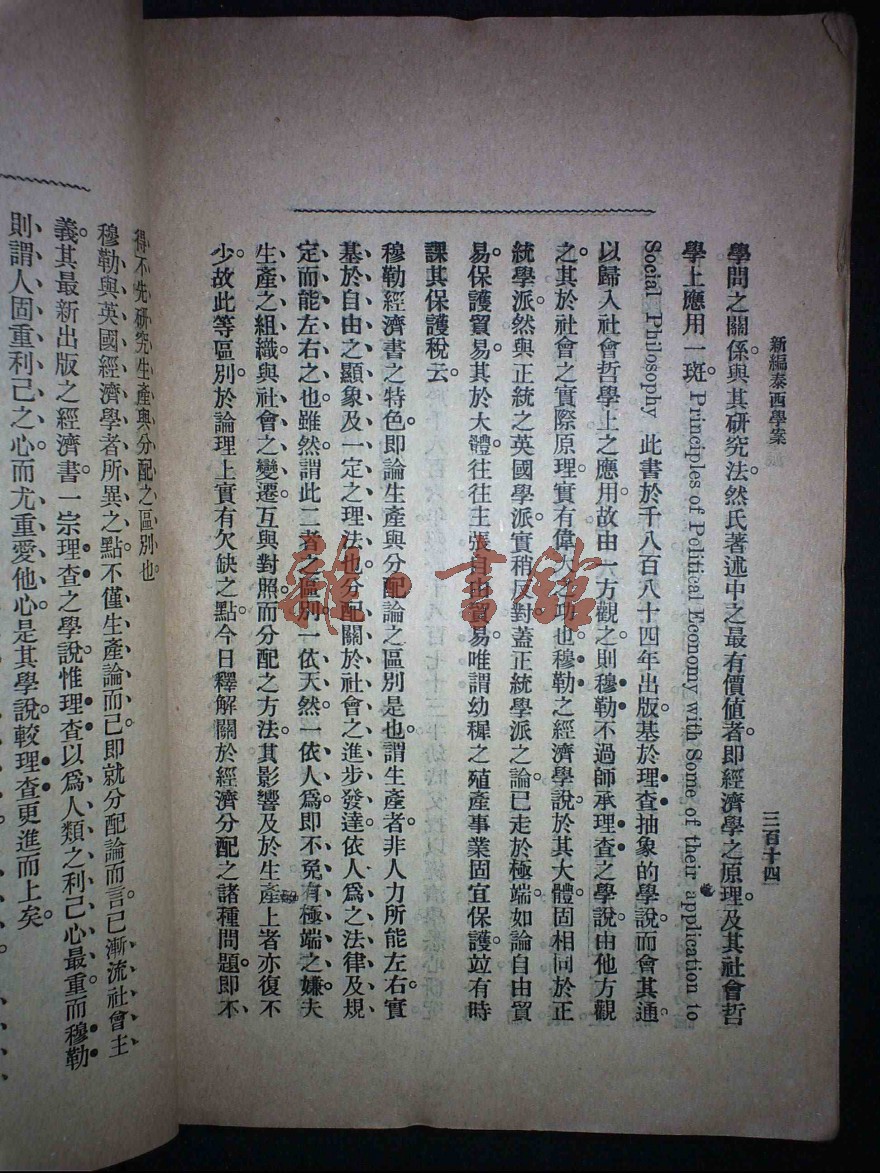 新編泰西學案
三百十四
學問之關係。與其研究法。然氏著述中之最有價值者。即經濟學之原理。及其社會哲
學上應用一斑。Principles of Political Economy with Some of their application to
Social Philosophy 此書於千八百八十四年出版。基於理查抽象的學說。而會其通。
以歸入社會哲學上之應用。故由一方觀之。則穆勒不過師承理查之學說。由他方觀
之。其於社會之實際原理。實有偉大之功也。穆勒之經濟學說。於其大體。固相同於正
統學派。然與正統之英國學派。實稍反對。蓋正統學派之論。已走於極端。如論自由貿
易保護貿易。其於大體。往往主張自由貿易。唯謂幼穉之殖產事業。固宜保護。竝有時
課其保護稅云。
穆勒經濟書之特色。即論生產與分配論之區別是也。謂生產者。非人力所能左右。實
基於自由之顯象及一定之理法也。分配關於社會之進步發達。依人爲之法律及規
定而能左右之也。雖然。謂此二者之區別。一依天然。一依人爲。即不免有極端之嫌。夫
生產之組織。與社會之變遷。互與對照。而分配之方法。其影響及於生產上者。亦復不
少。故此等區別。於論理上實有欠缺之點。今日釋解關於經濟分配之諸種問題。即不
得不先研究生產與分配之區別也。
穆勒與英國經濟學者所異之點。不僅生產論而已。即就分配論而言。已漸流社會主
義。其最新出版之經濟書。一宗理查之學說。惟理查以爲人類之利己心最重。而穆勒
則謂人固重利己之心。而尤重愛他心。是其學說較理查更進而上矣。
雜·書館